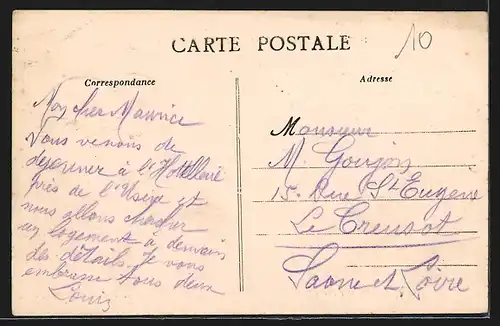 CARTE POSTALE
10
Correspondance
Adresse
Mon cher Maurice
Nous venons de
dejeuner à l'Hotellerie
près de l'Usine et
nous allons chercher
un logement à demain
des détails. Je vous
embrasse tous deux
Louis
Monsieur
M. Goujon
15 Rue St Eugene
Le Creusot
Saone et Loire